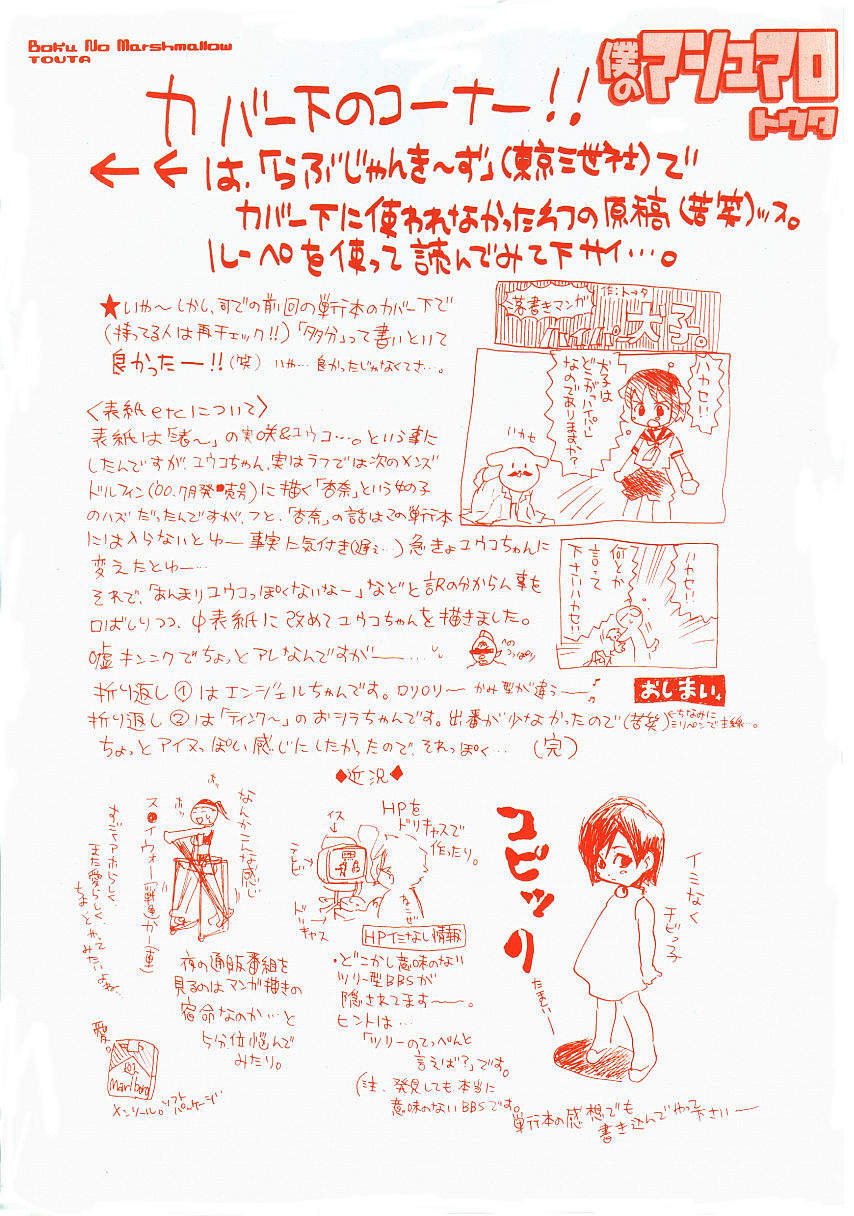 Boku No Marshmallow
TOUTA
僕のマシュマロ
トウタ
カバー下のコーナー!!
←←は、「らぶじゃんき〜ず」(東京三世社)で
カバー下に使われなかった
の原稿(苦笑)ッス。
ルーペを使って読んでみて下サイ…。
★いや〜しかし、
前回の単行本のカバー下で
(持ってる人は再チェック!!)「多分」って書いといて
良かったー!!(笑) いや…良かったじゃなくてさ…。
落書きマンガ
作:トータ
ハイパー犬子。
ハカセ!!
犬子は
どこが「ハイパー」
なのでありますか?
ハカセ!!
何とか
言って
下さいハカセ!!
おしまい。
<表紙etcについて>
表紙は「渚〜」の実咲&ユウコ…。という事に
したんですが、ユウコちゃん、実はラフでは次のメンズ
ドルフィン('00.7月発売号)に描く「杏奈」という女の子
のハズだったんですが、ふと、「杏奈」の話はこの単行本
には入らないとゆー事実に気付き(遅ぇ…)急きょユウコちゃんに
変えたとゆー…
それで、「あんまりユウコっぽくないなー」などと訳の分からん事を
口ばしりつつ、中表紙に改めてユウコちゃんを描きました。
嘘キンニクでちょっとアレなんですがー…
折り返し①はエンジェルちゃんです。ロリロリ〜 かみ型が違う〜
折り返し②は「ティンク〜」のおシラちゃんです。出番が少なかったので(苦笑)
←ちなみに
ミリペンで主線…。
ちょっとアイヌっぽい感じにしたかったので、それっぽく… (完)
◆近況◆
なんかこんな感じ
ホッ
ホッ
ス●イウォーカー
また愛らしく、
ちょっとやってみたいよね。
夜の通販番組を
見るのはマンガ描きの
宿命なのか…と
5分位悩んで
みたり。
愛。
Marlboro
メンソール。ソフトパッケージ
HPを
ドリキャスで
作ったり。
イス
テレビ
ドリキャス
HPイミなし情報
・どこかし意味のない
ツリー型BBSが
隠されてます〜。
ヒントは…
「ツリーのてっぺんと
言えば?」です。
(注、発見しても本当に
意味のないBBSです。
コピッリ
イミなく
チビっ子
たまい〜
単行本の感想でも
書き込んでやって
下さい〜